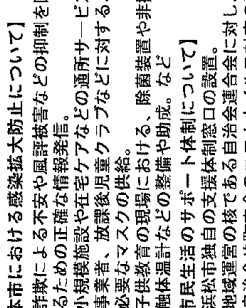 本市における感染拡大防止について】
詐欺による不安や風評被害などの抑制を図
るための正確な情報発信。
小規模施設や在宅ケアなどの通所サービス
事業者、放課後児童クラブなどに対する
必要なマスクの供給。
子供教育の現場における、除菌装置や非接
触体温計などの整備や助成。など
市民生活のサポート体制について】
浜松市独自の支援体制窓口の設置。
地域運営の核である自治会連合会に対し